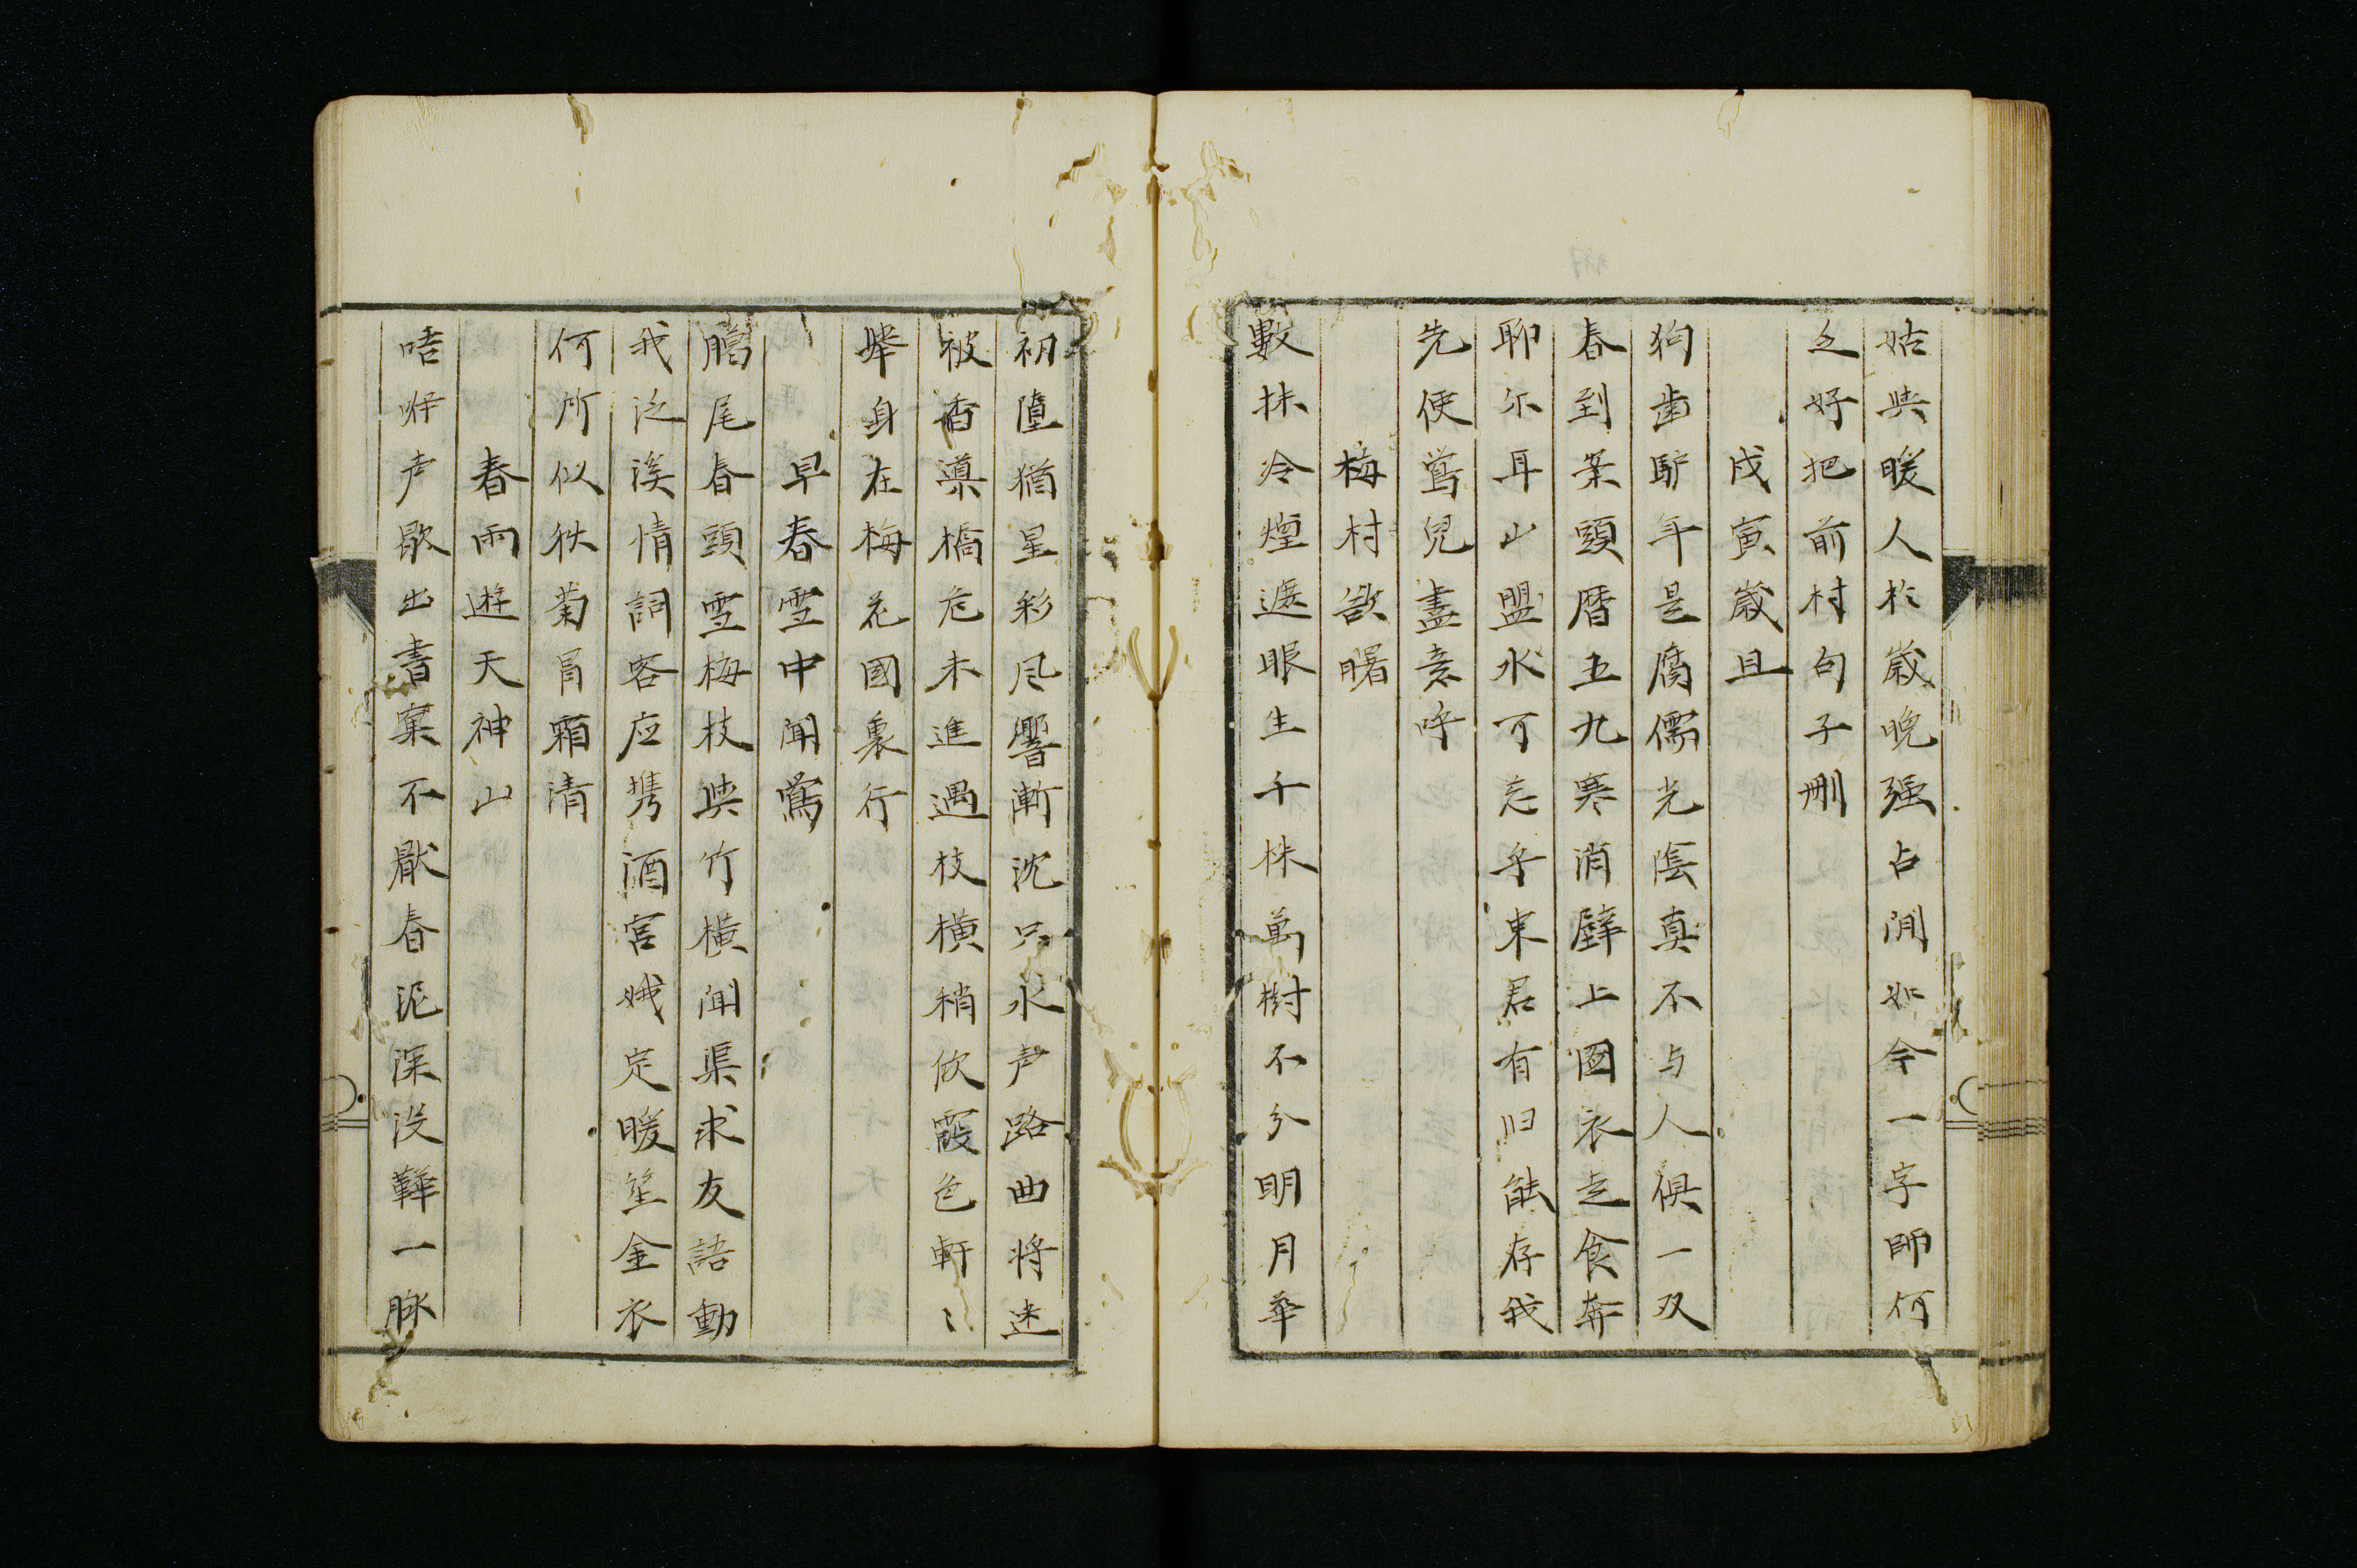 姑與暖人於歳晩强占閒如今一字師何
乏好把前村句子刪
戌寅歳旦
狗歯馿年是腐儒光陰真不与人俱一双
春到案頭暦五九寒消壁上図衣走食奔
聊尓耳山盟水可忘乎東君有旧能存我
先使鴬児盡意呼
梅村欲曙
數抹冷煙遮眼生千株萬樹不分明月華
初墮猶星彩风響漸沈只水声路曲将迷
被香導橋危未進遇枝横稍欣霞色軒〻
挙身在梅花國裏行
早春雪中聞鴬
臈尾春頭雪梅枝與竹横聞渠求友語動
我泛溪情詞客应携酒宮娥定暖笙金衣
何所似秩菊冐霜清
春雨遊天神山
咭咿声歇出書窠不厭春泥深没鞾一脉